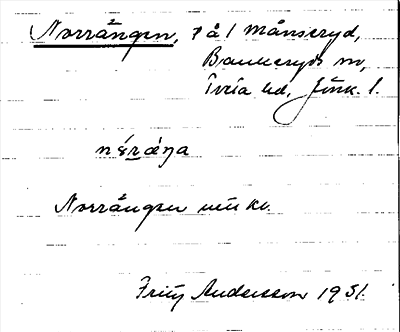 Norrången, på 1 Månseryd,
Bankeryds sn,
Tveta hd, Jönk. l.
nóràŋa
Norrången
Fritz Andersson 1931